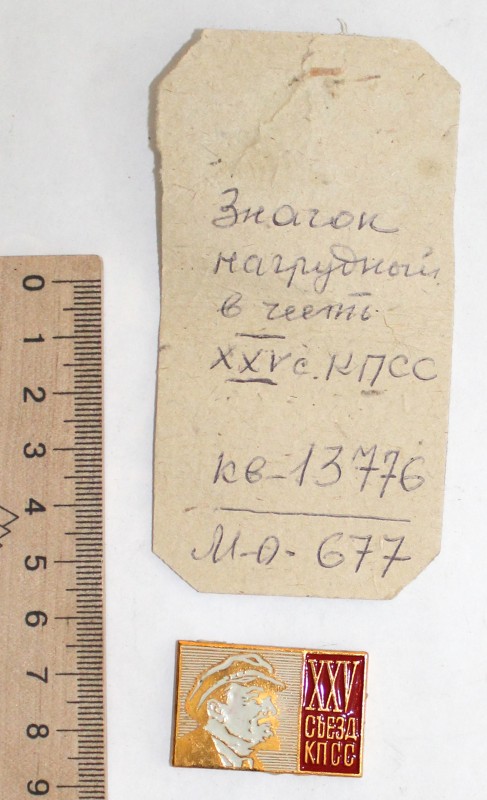 Значок
нагрудный
в честь
XXV с. КПСС
кв-13776
М-О-677
0
1
2
3
4
5
6
7
8
9
XXV
СЪЕЗД
КПСС